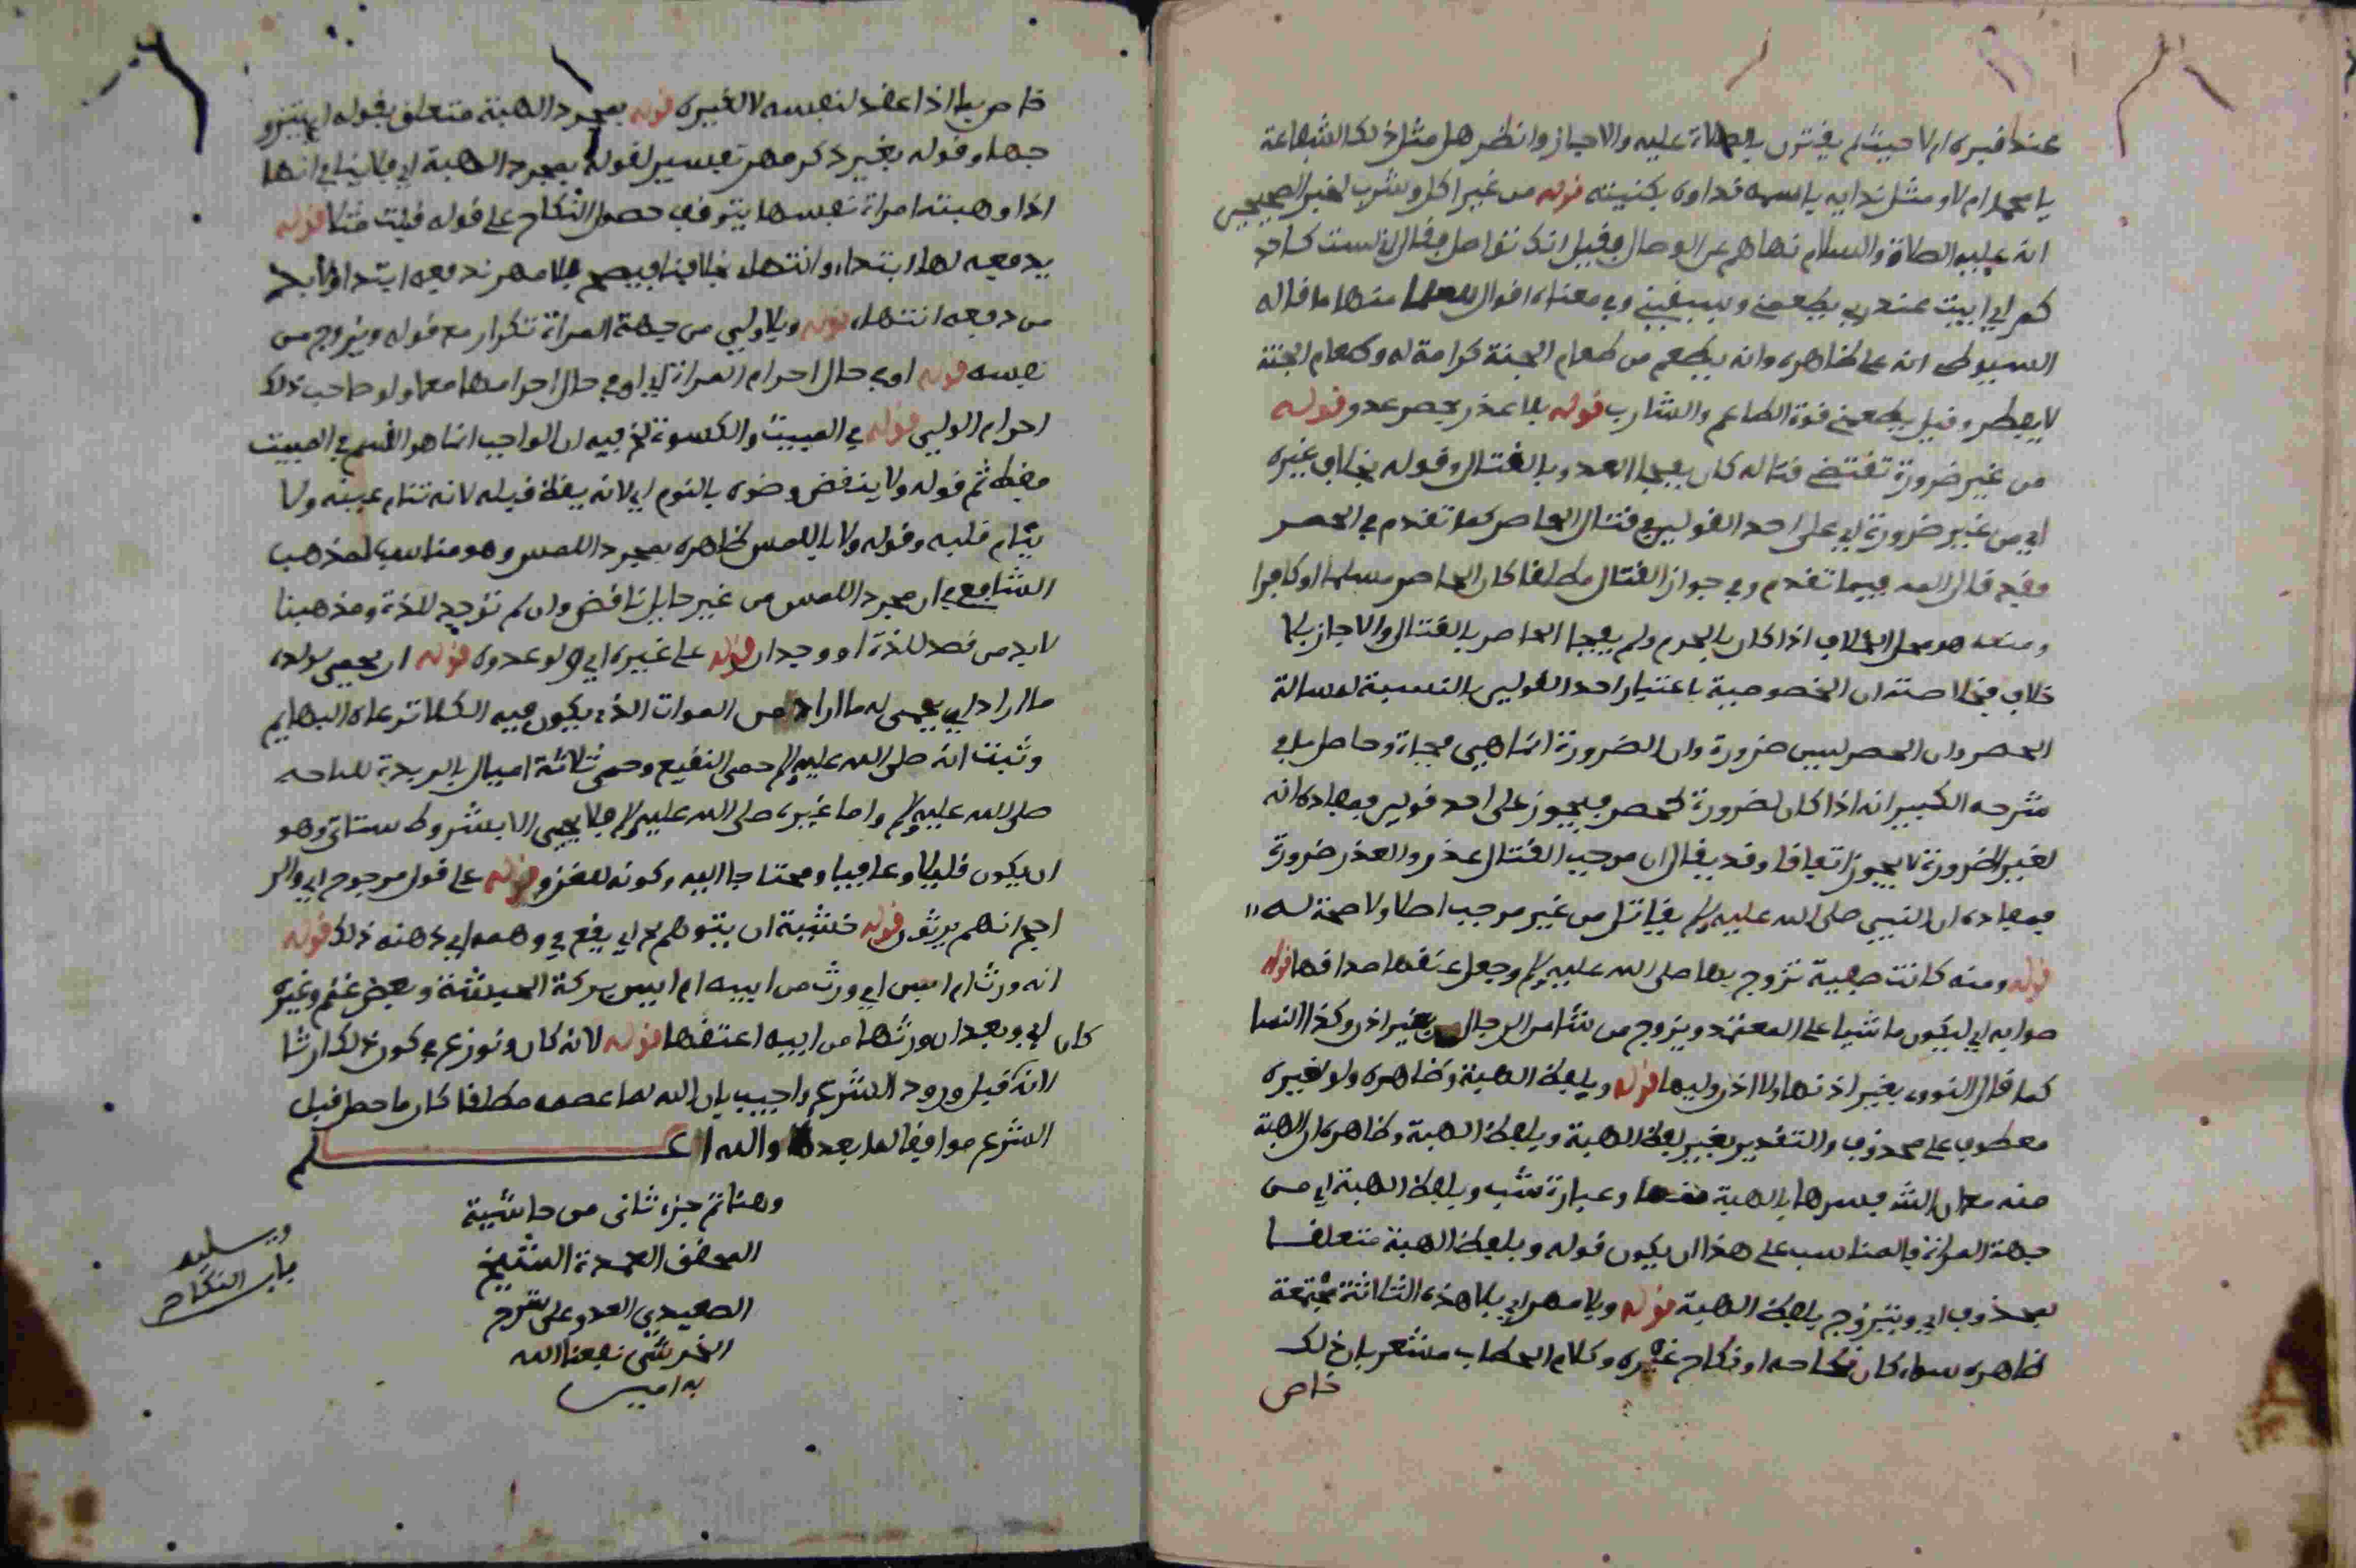 عند قبره ام لا حيث لم يقترن بالصلاة عليه والا جاز وانظر هل مثل ذلك الشفاعة
يا محمد ام لا ومثل ندايه باسمه نداوه بكنيته قوله من غير اكل وشرب لخبر الصحيحين
انه عليه الصلاة والسلام نهاهم عن الوصال فقيل انك تواصل فقال اني لست كاحد
كم اي ابيت عند ربي يطعمني ويسقيني وفي معناه اقوال للعلما منها ما قاله
السيوطي انه على ظاهره وانه يطعم من طعام الجنة كرامة له وطعام الجنة
لا يفطر وقيل يطعمني قوة الطاعم والشارب قوله بلا عذر بحصر عدو قوله
من غير ضرورة تقتضي قتاله كان يفجا العدو بالقتال وقوله بخلاف غيره
اي من غير ضرورة اي على احد القولين في قتال الحاصر كما تقدم في الحصر
فقد قال المص فيما تقدم وفي جواز القتال مطلقا كان الحاصر مسلما او كافرا
ومنعه هو محل الخلاف اذا كان بالحرم ولم يفجا الحاصر بالقتال والا جاز بلا
خلاف فخلاصته ان الخصوصية باعتبار احد القولين بالنسبة لمسالة
الحصر وان الحصر ليس ضرورة وان الضرورة انما هي فجاة وحاصل ما في
شرحه الكبير انه اذا كان لضرورة كحصر فيجوز على احد قولين فمفاده انه
لغير الضرورة لا يجوز اتفاقا وقد يقال ان موجب القتال عذر والعذر ضرورة
فمفاده ان النبي صلى الله عليه وسلم يقاتل من غير موجب اصلا ولا صحة له
قوله ومنه كانت صفية تزوج بها صلى الله عليه وسلم وجعل عتقها صداقها قوله
صوابه اي ليكون ماشيا على المعتمد ويزوج من شا من الرجال بغير اذن وكذا النسا
كما قال النووي بغير اذنها ولا اذن وليها قوله وبلفظ الهبة وظاهره ولو لغيره
معطوف على محذوف والتقدير بغير لفظ الهبة وبلفظ الهبة وظاهره ان الهبة
منه مع ان الش فسرها بالهبة منها وعبارة شب وبلفظ الهبة اي من
جهة المراة فالمناسب على هذا ان يكون قوله وبلفظ الهبة متعلقا
بمحذوف اي ويتزوج بلفظ الهبة قوله وبلا مهر اي بلا هذه الثلاثة مجتمعة
ظاهره سواء كان نكاحه او نكاح غيره وكلام الحطاب مشعر بان ذلك
خاص
خاص بما اذا عقد لنفسه لا لغيره قوله بمجرد الهبة متعلق بقوله اي يتزو
جها وقوله بغير ذكر مهر تفسير لقوله بمجرد الهبة اي فلا ينافي انها
اذا وهبت امراة نفسها يتوقف حصول النكاح على قوله قبلت مثلا قوله
يدفعه لها ابتداء وانتهاء بخلافنا فيصح بلا مهر ندفعه ابتدا ولا بد
من دفعه انتهاء قوله وبلا ولي من جهة المراة تكرار مع قوله ويزوج من
نفسه قوله او في حال احرام المراة اي او في حال احرامها معا ولو صاحب ذلك
احرام الولي قوله في المبيت والكسوة نظر فيه ان الواجب انما هو القسم في المبيت
فقط ثم قوله ولا ينقض وضوه بالنوم اي لانه يقظ قبله لانه تنام عينه ولا
ينام قلبه وقوله ولا باللمس ظاهره بمجرد اللمس وهو مناسب لمذهب
الشافعي ان مجرد اللمس من غير حايل ناقض وان لم توجد للذة ومذهبنا
لا بد من قصد للذة او وجدان قوله على غيره اي ولو عدوه قوله ان يحمي لولده
ما اراد اي يحمي له ما اراد من الموات الذي يكون فيه الكلا ترعاه البهايم
وثبت انه صلى الله عليه وسلم حمى النقيع وحمى ثلاثة اميال بالربدة
صلى الله عليه وسلم واما غيره صلى الله عليه وسلم فلا يحمي الا بشروط ستاتي وهو
ان يكون قليلا وعافيا ومحتاجا اليه وكونه للغزو قوله على قول مرجوح اي والر
اجح انهم يرثون قوله خشية ان يتوهم اي يقع في وهمه اي ذهنه ذلك قوله
انه ورث ام ايمن اي ورث من ابيه ام ايمن بركة الحبشية وبعض غنم وغيره
كان اي وبعد ان ورثها من ابيه اعتقها قوله لانه كان ونوزع في كون ذلك ارثا
لانه قبل ورود الشرع واجيب بان الله لما عصمه مطلقا كان ما حصل قبل
الشرع موافقا لما بعده والله اعلم
وهنا تم جزء ثاني من حاشية
المحقق العمدة الشيخ
الصعيدي العدو على شرح
الخرشي نفعنا الله
به امين
ويليه
باب النكاح